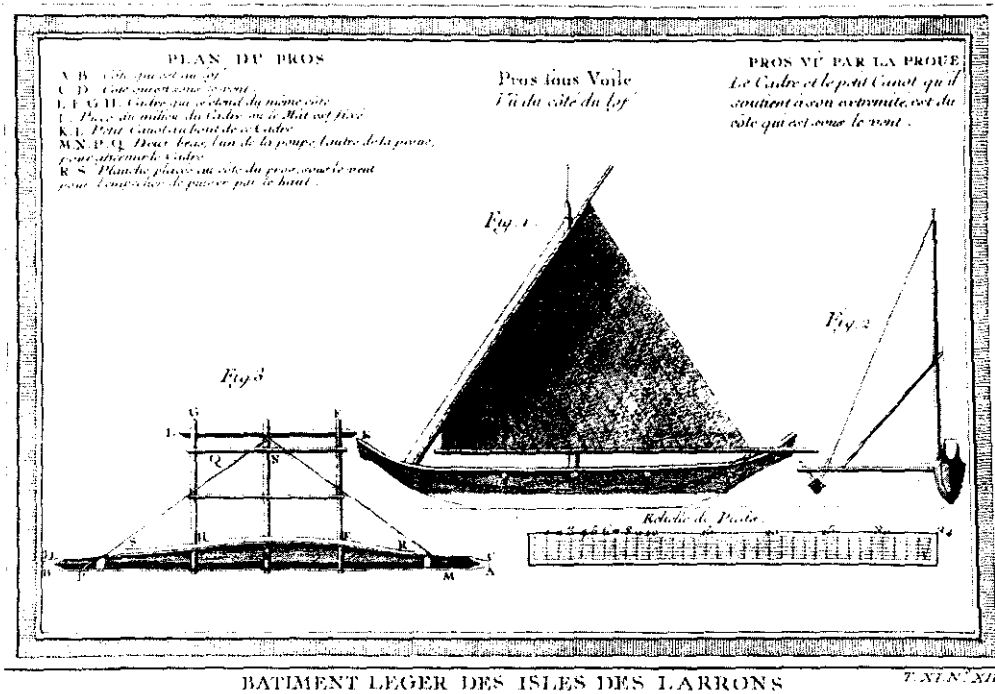 PLAN DU PROS
A B. Côté qui est au lof
C D. Côté qui est sous le vent
E F G H. Cadre qui s'étend du même côté
I. Piece du milieu du Cadre ou le Mât est fixé
K L. Petit Canot au bout de ce Cadre
M N P Q. Deux bras, l'un de la poupe l'autre de la proue,
pour affermir le Cadre
R S. Planche placée au côté du pros sous le vent
pour l'empecher de puiser par le haut.
Pros sous Voile
Vû du côté du lof
PROS VÛ PAR LA PROUE
Le Cadre et le petit Canot qu'il
soutient à son extremité, est du
côté qui est sous le vent.
Fig. 1.
Fig. 2
Fig. 3
G F
L K
Q S
S H E R
D B P M C A
Echelle de Pieds.
BATIMENT LEGER DES ISLES DES LARRONS
T. XI. N.º XII